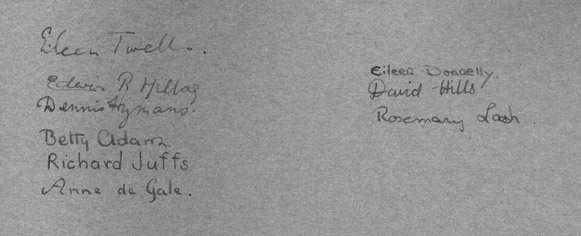 Eileen Twell.
Edwin R Hillag
Dennis Hymans.
Betty Adams
Richard Juffs
Anne de Gale.
Eileen Donnelly.
David Hills
Rosemary Lash.